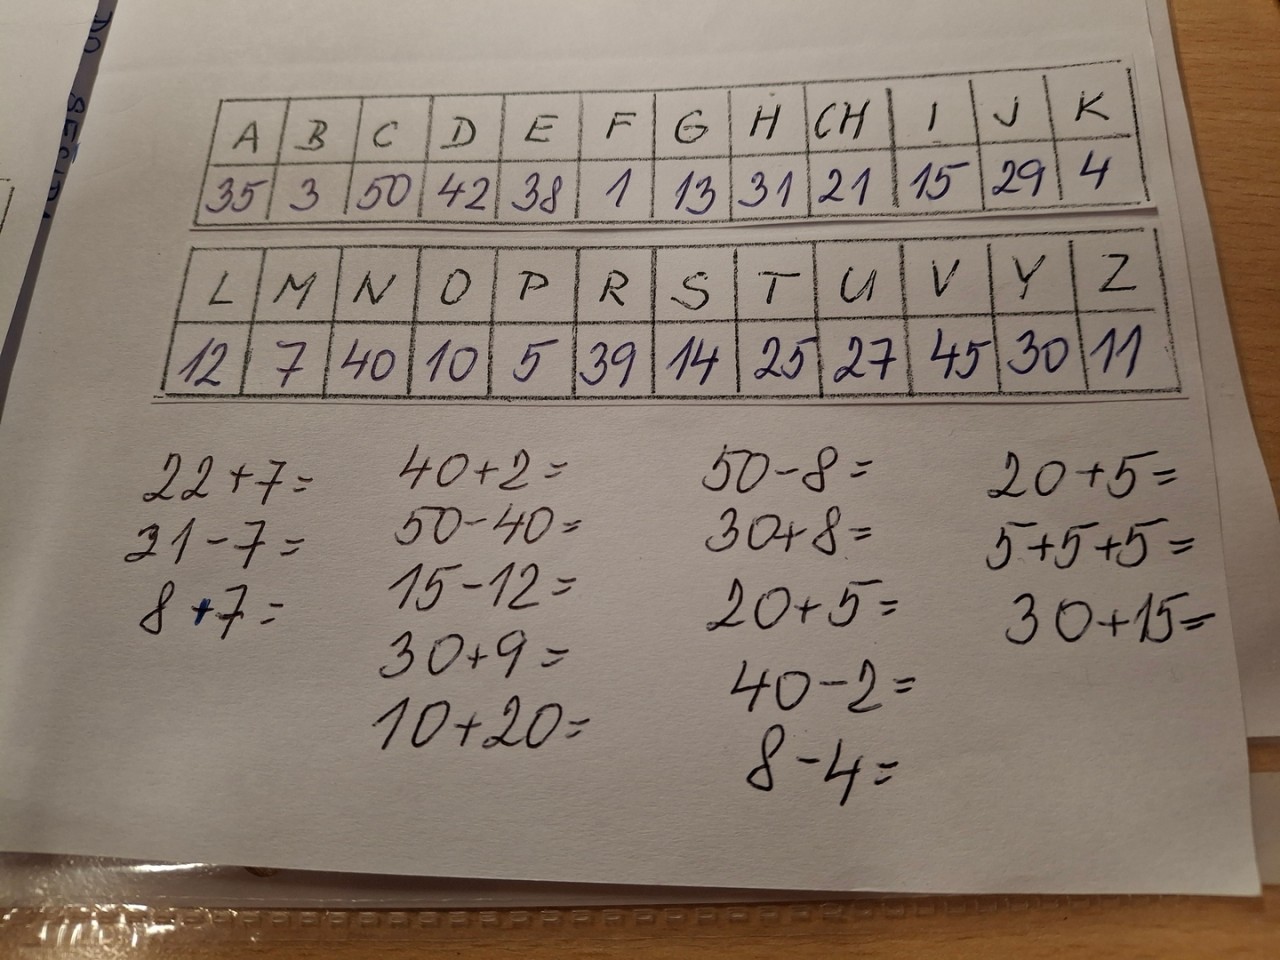 A B C D E F G H CH I J K
35 3 50 42 38 1 13 31 21 15 29 4
L M N O P R S T U V Y Z
12 7 40 10 5 39 14 25 27 45 30 11
22+7=
21-7=
8+7=
40+2=
50-40=
15-12=
30+9=
10+20=
50-8=
30+8=
20+5=
40-2=
8-4=
20+5=
5+5+5=
30+15=